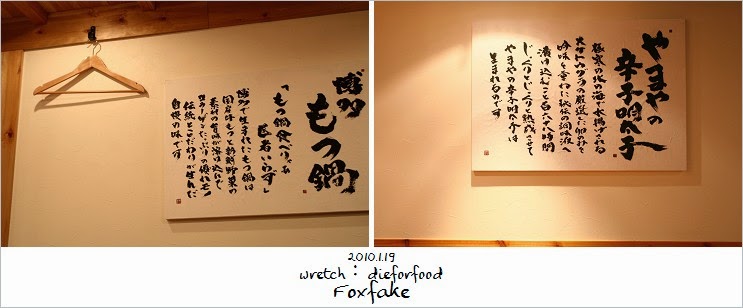 博多
もつ鍋
「もつ鍋食べりゃあ
医者いらず」
博多で生まれたもつ鍋は
国産味もつと新鮮野菜の
素材の旨味が溶け込んで
コラーゲンたっぷりの優れモノ
伝統とこだわりが生んだ
自慢の味です
やまやの
辛子明太子
極寒の北の海で水揚げされる
スケトウダラの厳選した卵のみを
吟味を重ねた秘伝の調味液へ
漬け込むこと百六十八時間
じっくりとじっくりと熟成させて
やまやの辛子明太子は
生まれるのです
2010.1.19
wretch : dieforfood
Foxfake